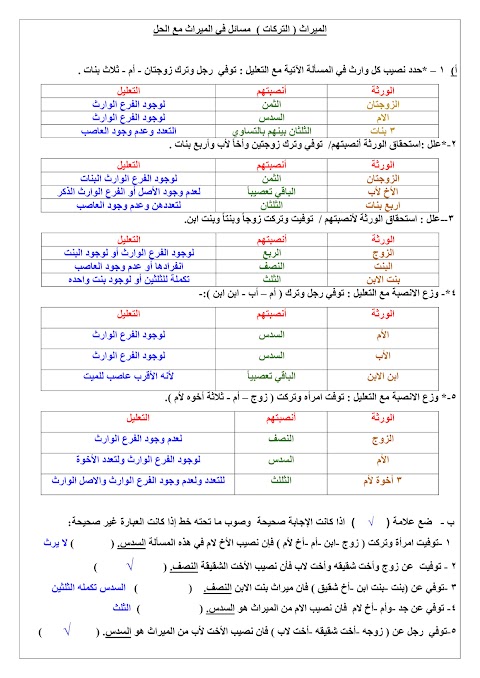 الميراث ( التركات ) مسائل في الميراث مع الحل
أ) ١ – *حدد نصيب كل وارث في المسألة الآتية مع التعليل : توفي رجل وترك زوجتان - أم - ثلاث بنات .
الورثة أنصبتهم التعليل
الزوجتان الثمن لوجود الفرع الوارث
الأم السدس لوجود الفرع الوارث
٣ بنات الثلثان بينهم بالتساوي التعدد وعدم وجود العاصب
٢-*علل :استحقاق الورثة أنصبتهم/ توفي وترك زوجتين وأخاً لأب وأربع بنات .
الورثة أنصبتهم التعليل
الزوجتان الثمن لوجود الفرع الوارث البنات
الأخ لأب الباقي تعصيباً لعدم وجود الأصل أو الفرع الوارث الذكر
اربع بنات الثلثان لتعددهن وعدم وجود العاصب
٣–علل : استحقاق الورثة لأنصبتهم / توفيت وتركت زوجاً وبنتاً وبنت ابن.
الورثة أنصبتهم التعليل
الزوج الربع لوجود الفرع الوارث أو لوجود البنت
البنت النصف انفرادها أو عدم وجود العاصب
بنت الابن الثلث تكملة للثلثين أو لوجود بنت واحده
٤*- وزع الانصبة مع التعليل : توفي رجل وترك ( أم – أب - ابن ابن ):-
الورثة أنصبتهم التعليل
الأم السدس لوجود الفرع الوارث
الأب السدس لوجود الفرع الوارث
ابن الابن الباقي تعصيباً لأنه الأقرب عاصب للميت
٥-* وزع الانصبة مع التعليل : توفت امرأه وتركت ( زوج – أم - ثلاثة أخوه لأم ).
الورثة أنصبتهم التعليل
الزوج النصف لعدم وجود الفرع الوارث
الأم السدس لوجود الفرع الوارث ولتعدد الأخوة
٣ أخوة لأم الثلث للتعدد ولعدم وجود الفرع الوارث والاصل الوارث
ب - ضع علامة ( √ ) اذا كانت الإجابة صحيحة وصوب ما تحته خط إذا كانت العبارة غير صحيحة:
١ -توفيت امرأة وتركت ( زوج -ابن -أم -أخ لأم ) فان نصيب الأخ لام في هذه المسألة السدس. ( ) لا يرث
٢ - توفيت عن زوج وأخت شقيقه وأخت لاب فان نصيب الأخت الشقيقة النصف. ( √ )
٣ -توفي عن (بنت -بنت ابن -أخ شقيق ) فان ميراث بنت الابن النصف. ( ) السدس تكمله الثلثين
٤- توفي عن جد -وأم -أخ لام فان نصيب الام من الميراث هو السدس. ( ) الثلث
٥-توفي رجل عن ( زوجه -أخت شقيقه -أخت لاب ) فان نصيب الأخت لأب من الميراث هو السدس. ( √ )